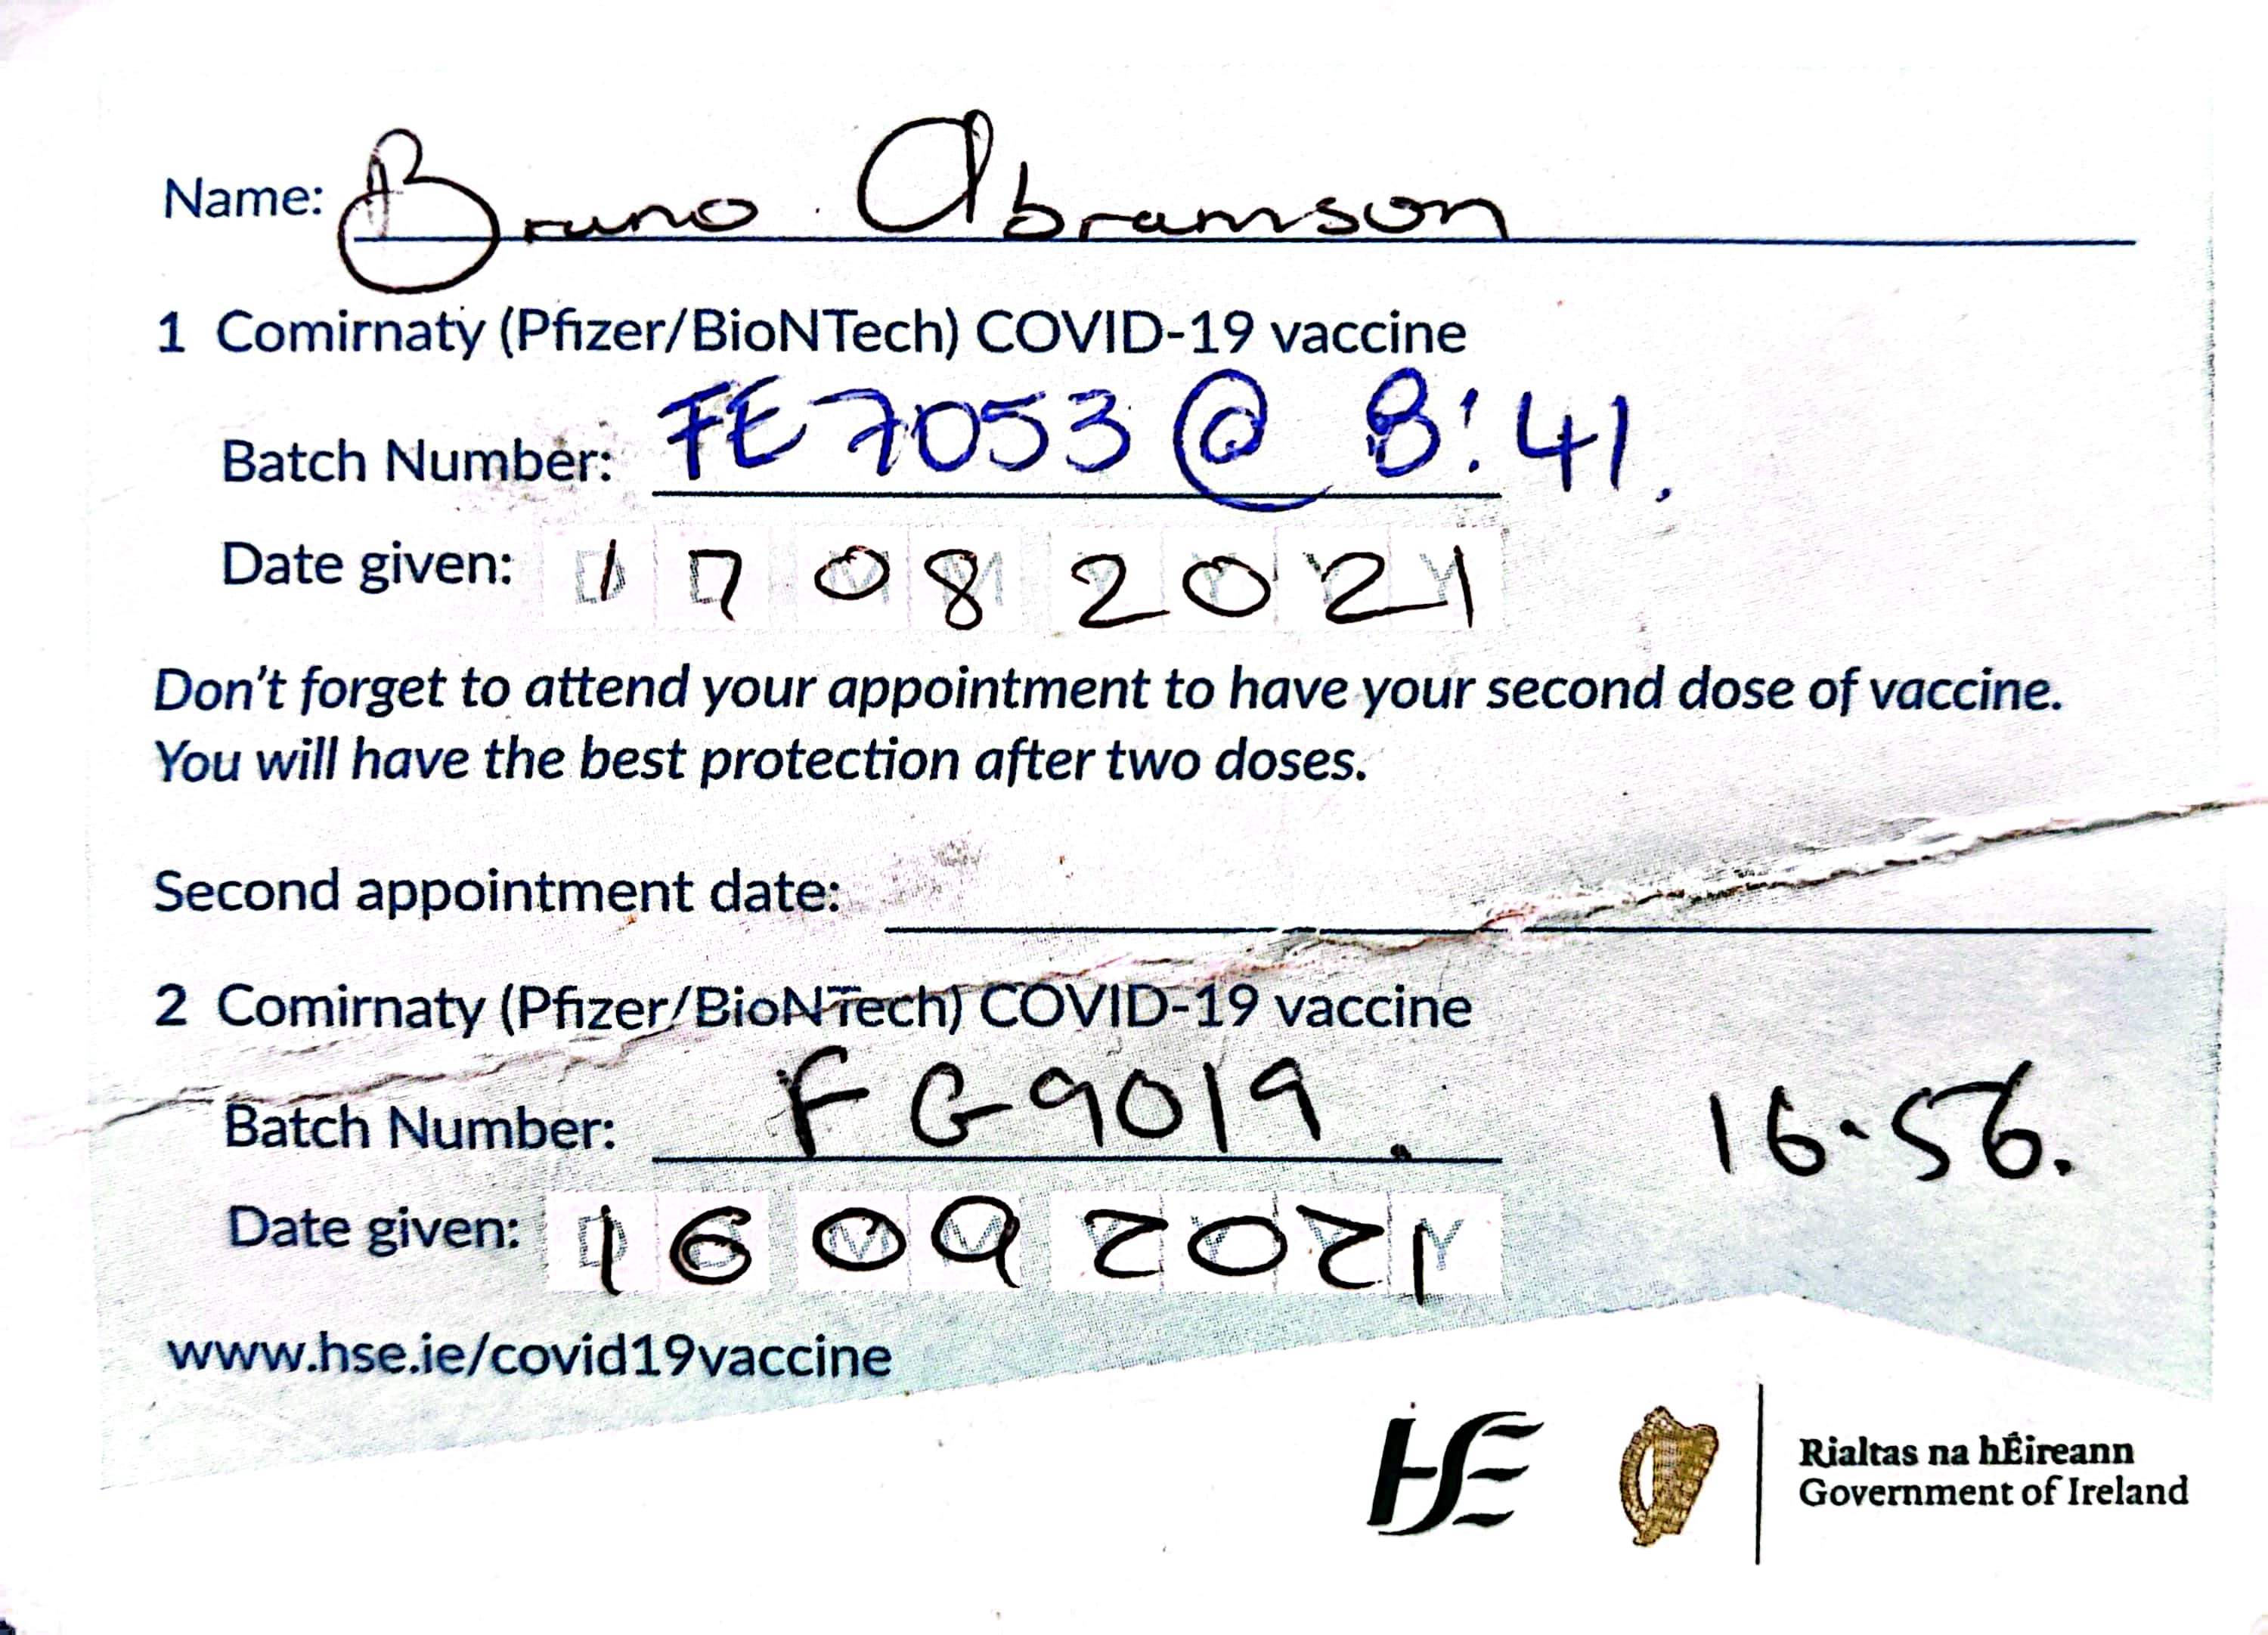 Name: Bruno Abramson
1 Comirnaty (Pfizer/BioNTech) COVID-19 vaccine
Batch Number: FE7053 @ 8:41.
Date given: 17 08 2021
Don't forget to attend your appointment to have your second dose of vaccine.
You will have the best protection after two doses.
Second appointment date:
2 Comirnaty (Pfizer/BioNTech) COVID-19 vaccine
Batch Number: FG9019. 16.56.
Date given: 16 09 2021
www.hse.ie/covid19vaccine
HSE
Rialtas na hÉireann
Government of Ireland